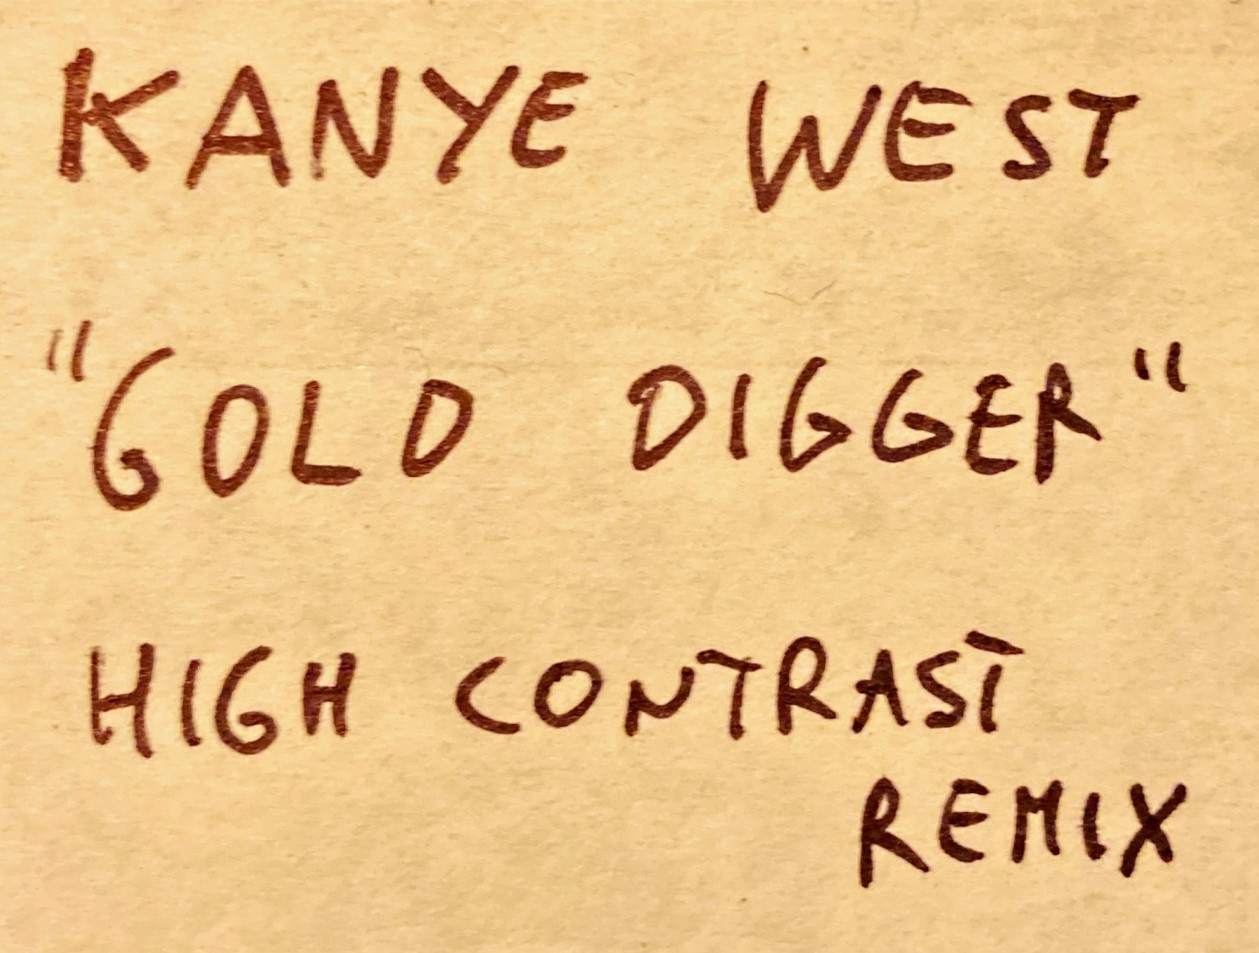 KANYE WEST
"GOLD DIGGER"
HIGH CONTRAST
REMIX